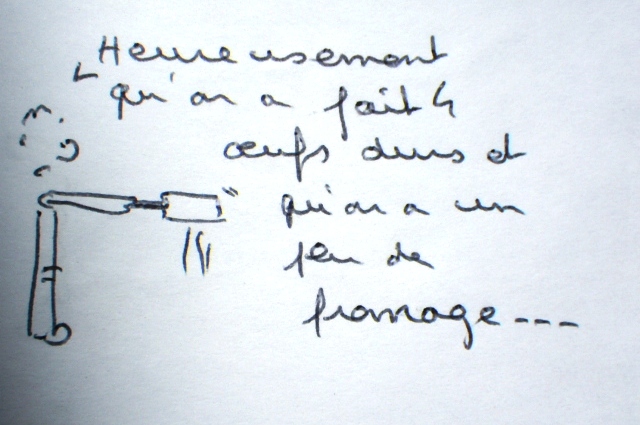 Heureusement
qu'on a fait 4
œufs durs et
qu'on a un
peu de
fromage---